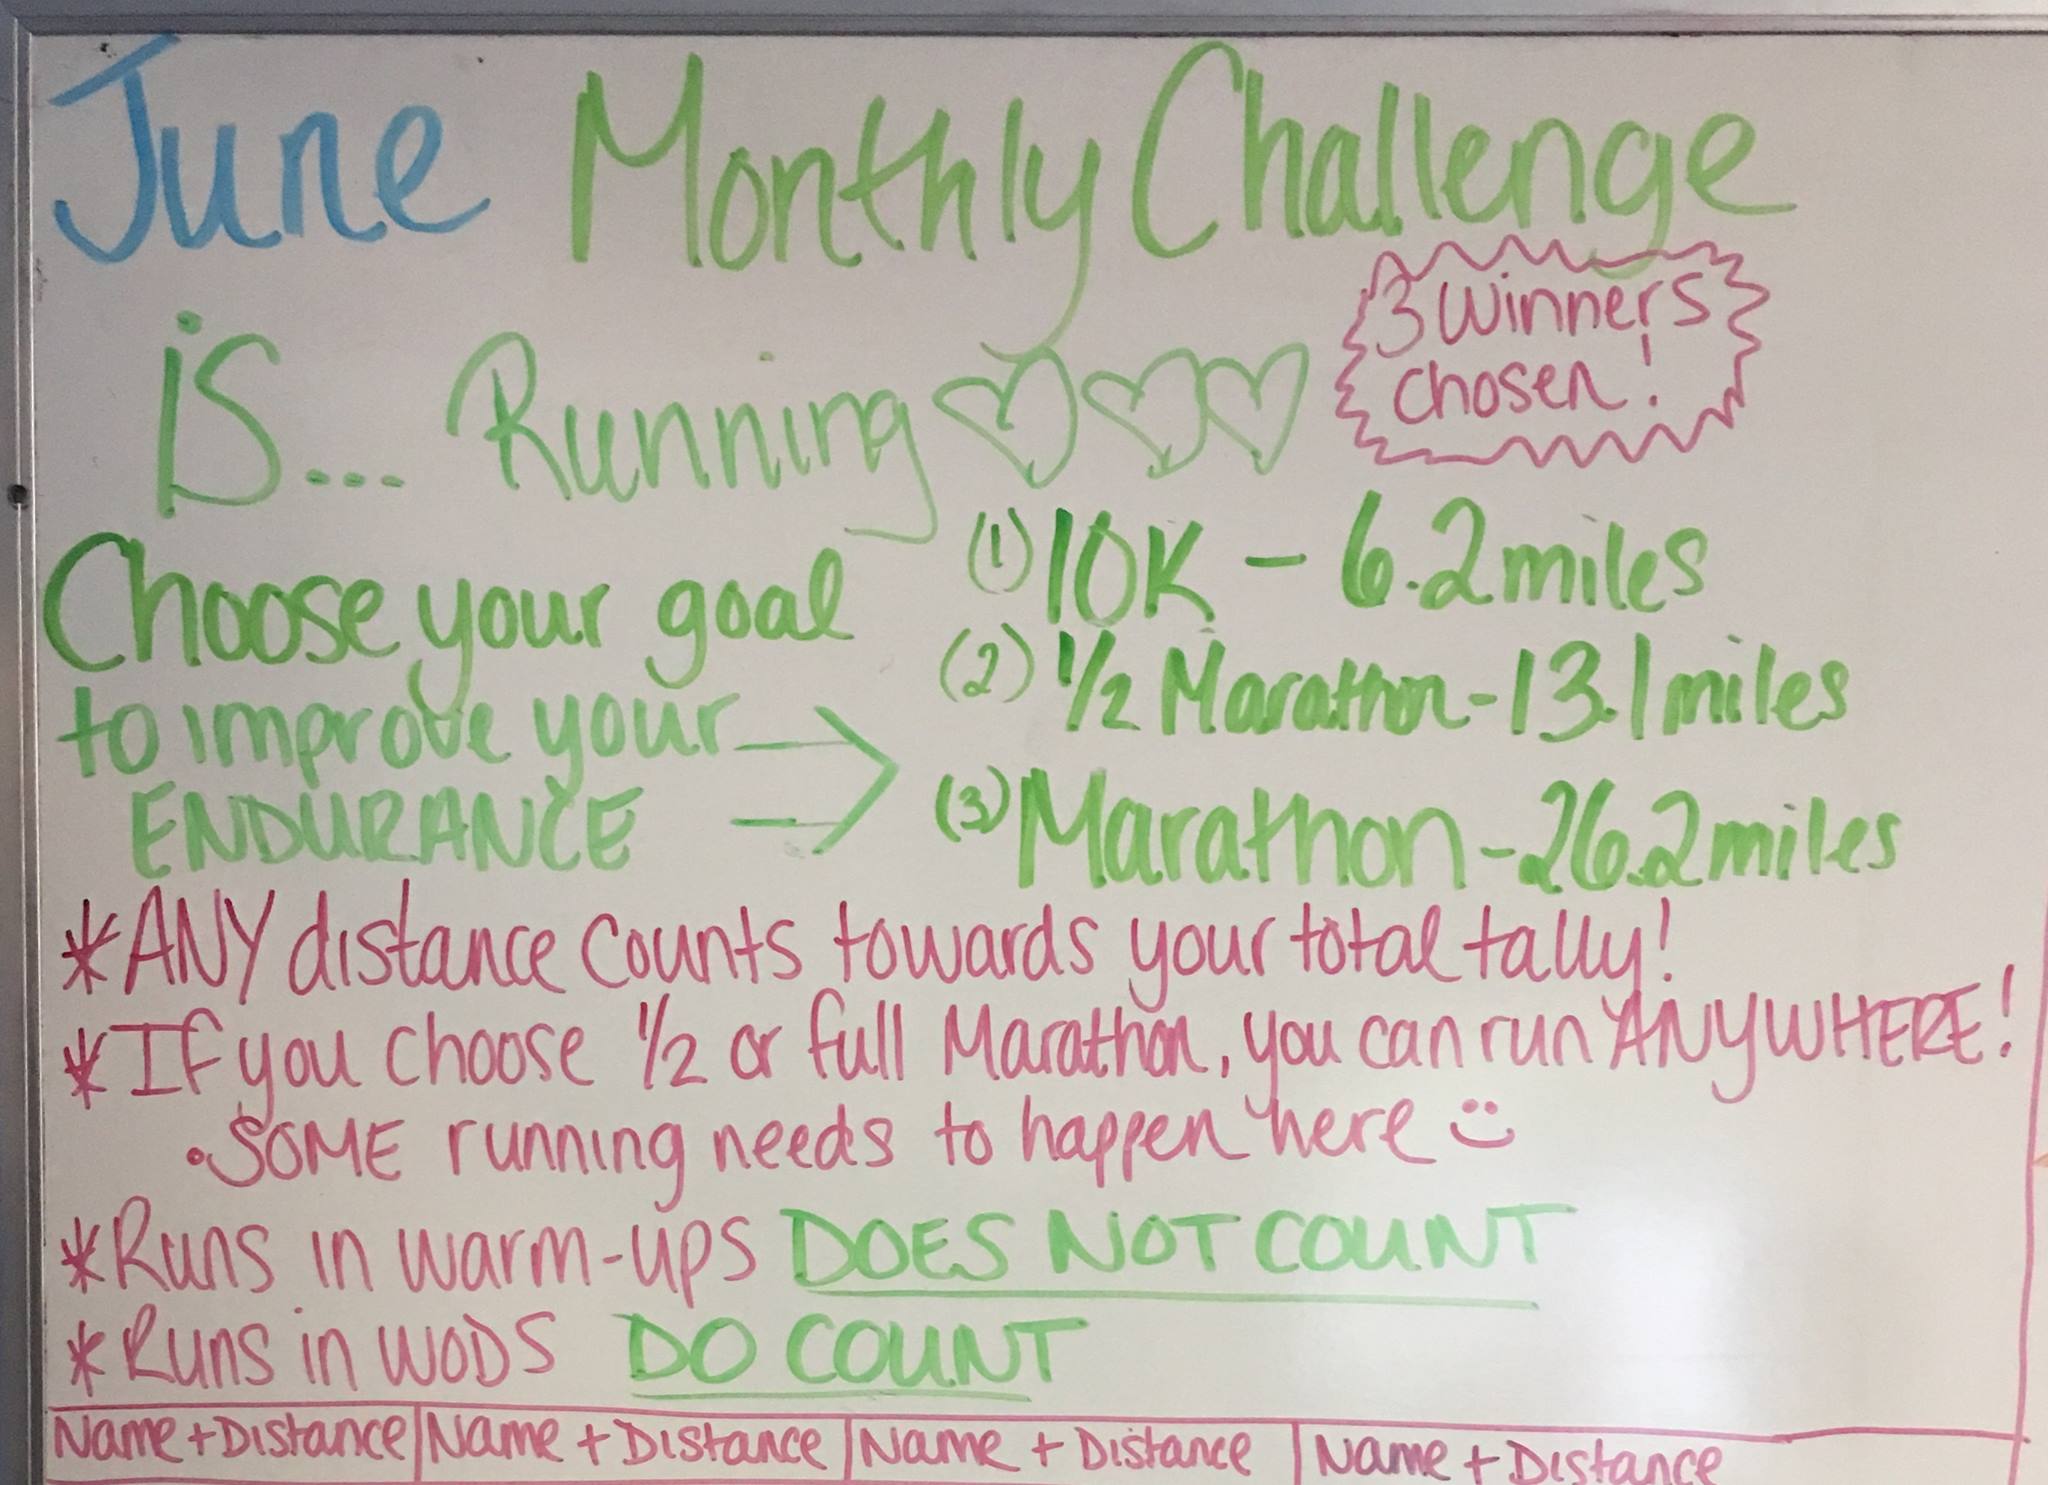 June Monthly Challenge
is... Running
3 Winners
chosen!
Choose your goal
to improve your
ENDURANCE
(1) 10K - 6.2 miles
(2) 1/2 Marathon - 13.1 miles
(3) Marathon - 26.2 miles
*ANY distance counts towards your total tally!
*If you choose 1/2 or full Marathon, you can run ANYWHERE!
•SOME running needs to happen here
*Runs in warm-ups DOES NOT COUNT
*Runs in WODS DO COUNT
Name + Distance | Name + Distance | Name + Distance | Name + Distance